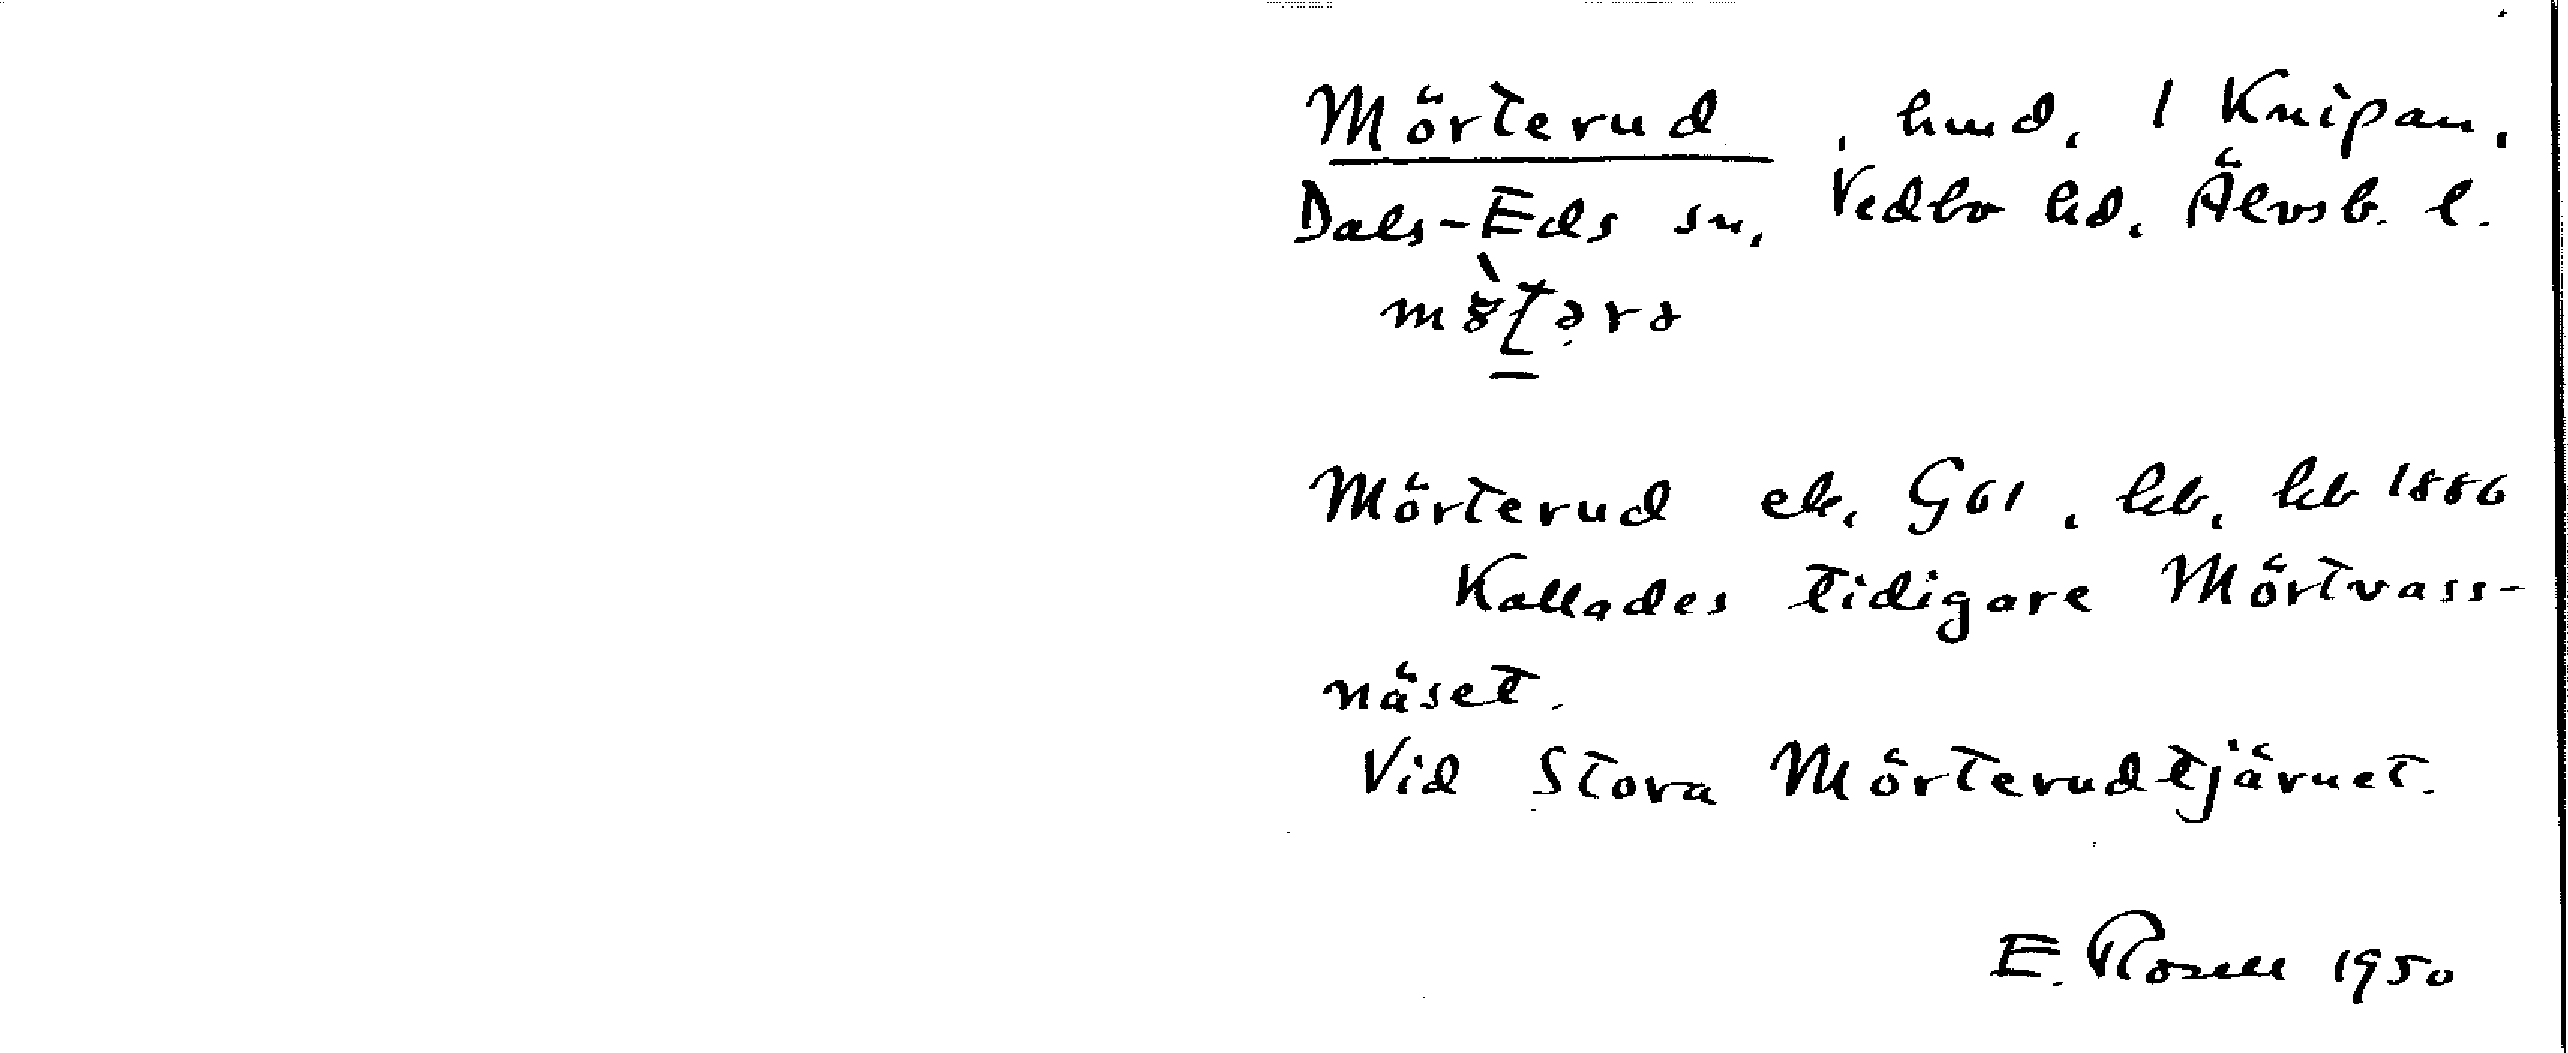 Mörterud, hmd, 1 Knipan,
Dals-Eds sn, Vedbo hd, Älvsb. l.
Mörterud ek, G61, hb, kb 1886
Kallades tidigare Mörtvass-
näset.
Vid Stora Mörterudtjärnet.
E. Rosell 1950